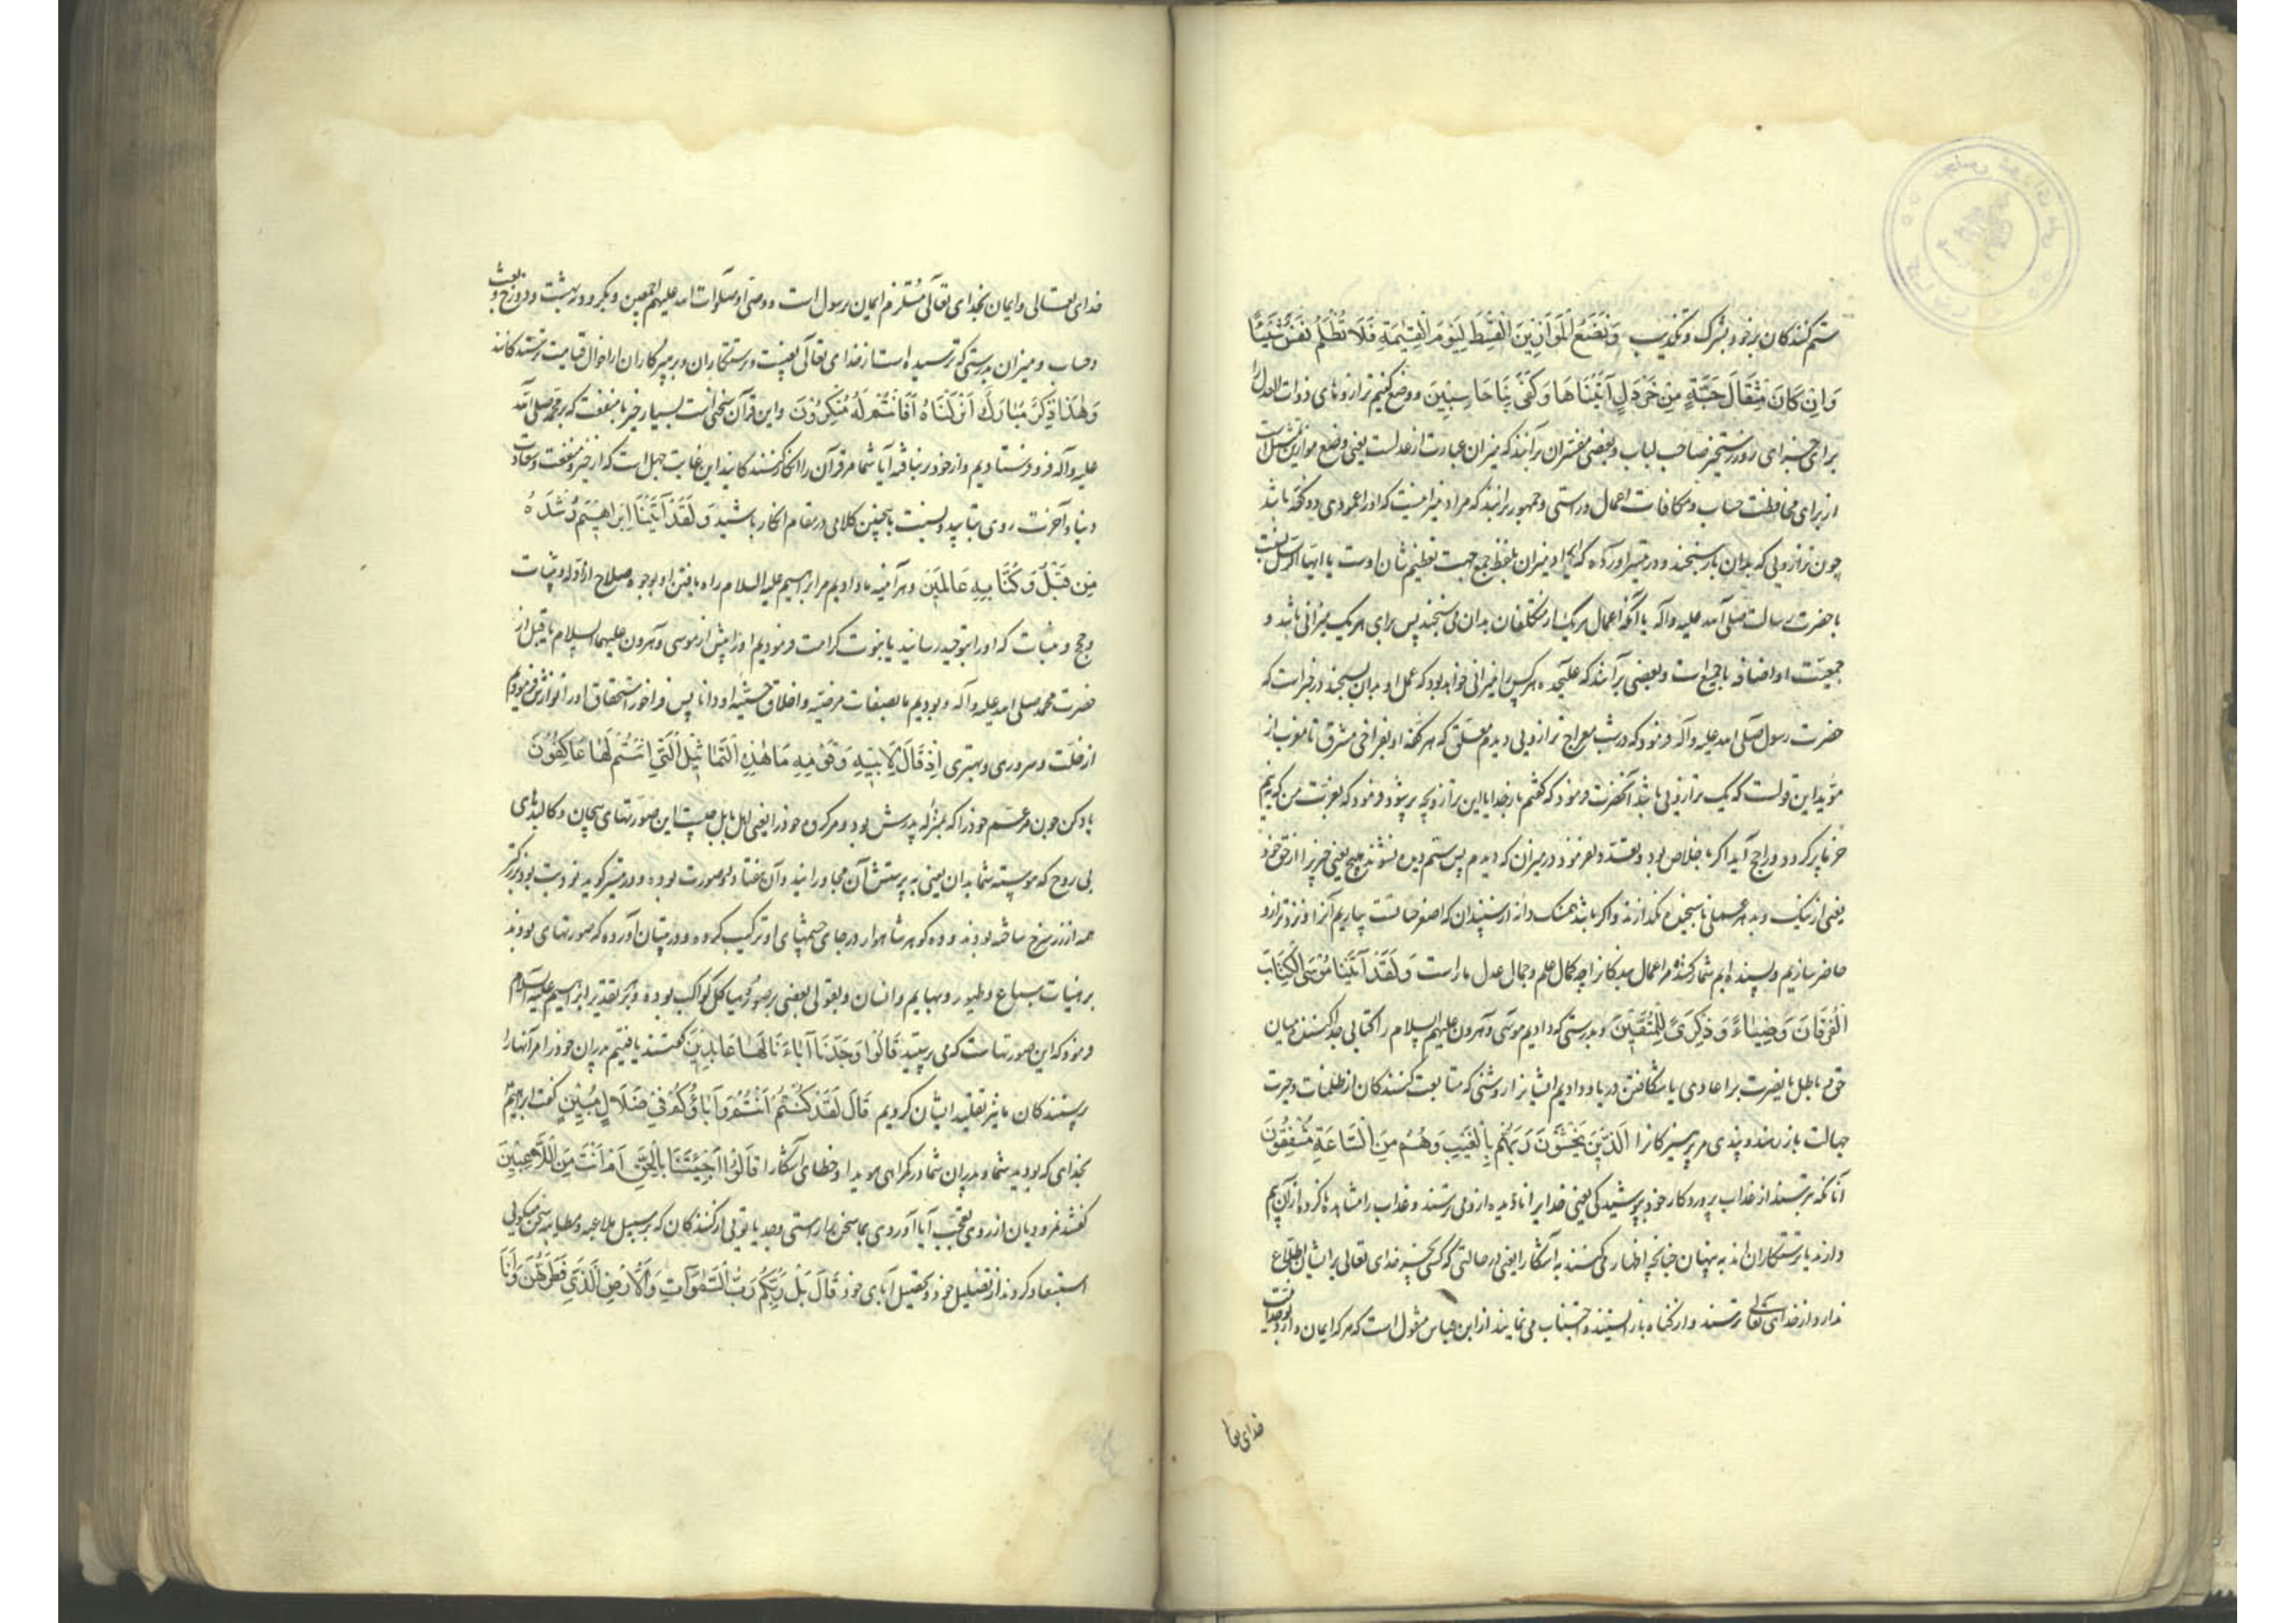 ستم کنندکان برخود بشرک و تکذیب وَنَضَعُ الْمَوَازِينَ الْقِسْطَ لِيَوْمِ الْقِيٰمَةِ فَلَا تُظْلَمُ نَفْسٌ شَيْئًا
وَاِنْ كَانَ مِثْقَالَ حَبَّةٍ مِنْ خَرْدَلٍ اَتَيْنَا بِهَا وَكَفٰى بِنَا حَاسِبِينَ و وضع کنیم ترازوهای ذوات العدل را
برای جزای روز رستخیز صاحب لباب و بعضی مفسران برآنند که میزان عبارت از عدلست یعنی وضع موازین
از برای محافظت حساب و مکافات اعمال و راستی و جمهور برانند که مراد میزانیست که او را عمودی و دو کفه باشد
چون ترازویی که بدان بار سنجند و در تیسیر آورده که ایراد میزان بلفظ جمع جهت تعظیم شان اوست یا
با حضرت رسالت صلی الله علیه وآله یا آنکه اعمال هر یک از مکلفان بدان می سنجند پس برای هر یک میزانی باشد و
جمعیت او اضافه با جمیع است و بعضی برآنند که علیحده هر کس را میزانی خواهد بود که عمل او بدان سنجند در خبر است که
حضرت رسول صلی الله علیه وآله فرمود که در شب معراج ترازویی دیدم معلق که هر کفه او بفراخی مشرق تا مغرب از
مؤید این قولست که یک ترازویی باشد آنحضرت فرمود که گفتم بار خدایا این ترازو بچه پر شود فرمود که بعزت من که به نیم
خرما پر کردد و راجح آید اکر با خلاص بود و بعد فرمود در میزان که دیدم پس ستم دیده نشوند هیچ یعنی چیزی را از حق خود
یعنی از نیک و بد هر عملی ناسنجیده نکذارند و اکر باشد همسنک دانه از سپندان که اصغر حبات است بیاریم آنرا و نزد ترازو
حاضر سازیم و بسنده ایم شمار کننده مر اعمال بندکانرا چه کمال علم و جمال عدل ماراست وَلَقَدْ اٰتَيْنَا مُوسَى الْكِتَابَ
الْفُرْقَانَ وَضِيَاءً وَذِكْرًى لِلْمُتَّقِينَ و بدرستی که دادیم موسی و هرون علیهم السلام را کتابی جدا کننده میان
حق و باطل یا نصرت بر اعادی یا شکافتن دریا و دادیم ایشانرا روشنی که متابعت کنندکان از ظلمات و حیرت
جهالت باز رهند و پندی مر پرهیزکانرا اَلَّذِينَ يَخْشَوْنَ رَبَّهُمْ بِالْغَيْبِ وَهُمْ مِنَ السَّاعَةِ مُشْفِقُونَ
آنانکه بترسند از عذاب پروردکار خود بپوشیدکی یعنی خدایرا نادیده از وی ترسند و عذاب را مشاهده نکرده از آن بیم
دارند یا ترسکاران اند به پنهان چنانچه اظهار می کنند به آشکارا یعنی در حالتی که کسی بجز خدای تعالی بر ایشان اطلاع
ندارد از خدای تعالی ترسند و از کناه باز ایستند و اجتناب می نمایند از ابن عباس منقول است که هر که ایمان دارد
خدای تعا
خدای تعالی و ایمان بخدای تعالی مستلزم ایمان رسول است و وصی او صلوات الله علیهم اجمعین و بکرود و بهشت و دوزخ و بعث
و حساب و میزان بدرستی که ترسیده است از خدای تعالی بغیب و رستکاران و پرهیزکاران از احوال قیامت ترسندکانند
وَهٰذَا ذِكْرٌ مُبَارَكٌ اَنْزَلْنَاهُ اَفَاَنْتُمْ لَهُ مُنْكِرُونَ و این قرآن سخنی است بسیار خیر با منفعت که بر محمد صلی الله
علیه وآله فرو فرستادیم و از خود بر نبافته آیا شما مر قرآن را انکار کنندکانید این غایت جهل است که از خیر و منفعت و سعادت
دنیا و آخرت روی بتابید و نسبت با چنین کلامی در مقام انکار باشید وَلَقَدْ اٰتَيْنَا اِبْرَاهِيمَ رُشْدَهُ
مِنْ قَبْلُ وَكُنَّا بِهِ عَالِمِينَ و هر آینه ما دادیم مر ابراهیم علیه السلام راه یافتن او بوجوه صلاح از ادله و بینات
و حجج و مثبات که او را بتوحید رسانید یا بنبوت کرامت فرمودیم او را پیش از موسی و هرون علیهما السلام یا قبل از
حضرت محمد صلی الله علیه وآله و بودیم ما بصفات مرضیه و اخلاق حسنه او دانا پس فراخور استحقاق او را نوازش فرمودیم
از خلت و سروری و بهتری اِذْ قَالَ لِاَبِيهِ وَقَوْمِهِ مَا هٰذِهِ التَّمَاثِيلُ الَّتِي اَنْتُمْ لَهَا عَاكِفُونَ
یاد کن چون مر عم خود را که بمنزله پدرش بود و مر کروه خود را یعنی اهل بابل چیست این صورتهای بیجان و کالبدهای
بی روح که پیوسته شما بدان یعنی به پرستش آن مجاورانید و آن هفتاد و دو صورت بوده و در تیسیر کوید نود بت بود بزرکتر
همه از زر سرخ ساخته بودند و دو کوهر شاهوار در جای چشمهای او ترکیب کرده و در تبیان آورده که صورتهای بودند
بر هیات سباع و طیور و بهایم و انسان و بقولی بعضی بر صور هیاکل کواکب بوده و بر هر تقدیر ابراهیم علیه السلام
فرمود که این صورتها چیست که می پرستید قَالُوا وَجَدْنَا اٰبَاءَنَا لَهَا عَابِدِينَ گفتند یافتیم پدران خود را مر آنها را
پرستندکان ما نیز تقلید ایشان کردیم قَالَ لَقَدْ كُنْتُمْ اَنْتُمْ وَاٰبَاؤُكُمْ فِي ضَلَالٍ مُبِينٍ گفت ابراهیم
بخدای که بودید شما و پدران شما در کمراهی هویدا و خطای آشکارا قَالُوا اَجِئْتَنَا بِالْحَقِّ اَمْ اَنْتَ مِنَ اللَّاعِبِينَ
گفتند نمرودیان از روی تعجب آیا آوردی بما سخن براستی و جد یا تویی از کنندکان که بر سبیل ملاعبه و مطایبه سخن میکویی
استبعاد کردند از تضلیل خود و تجهیل آبای خود قَالَ بَلْ رَبُّكُمْ رَبُّ السَّمٰوَاتِ وَالْاَرْضِ الَّذِي فَطَرَهُنَّ وَاَنَا